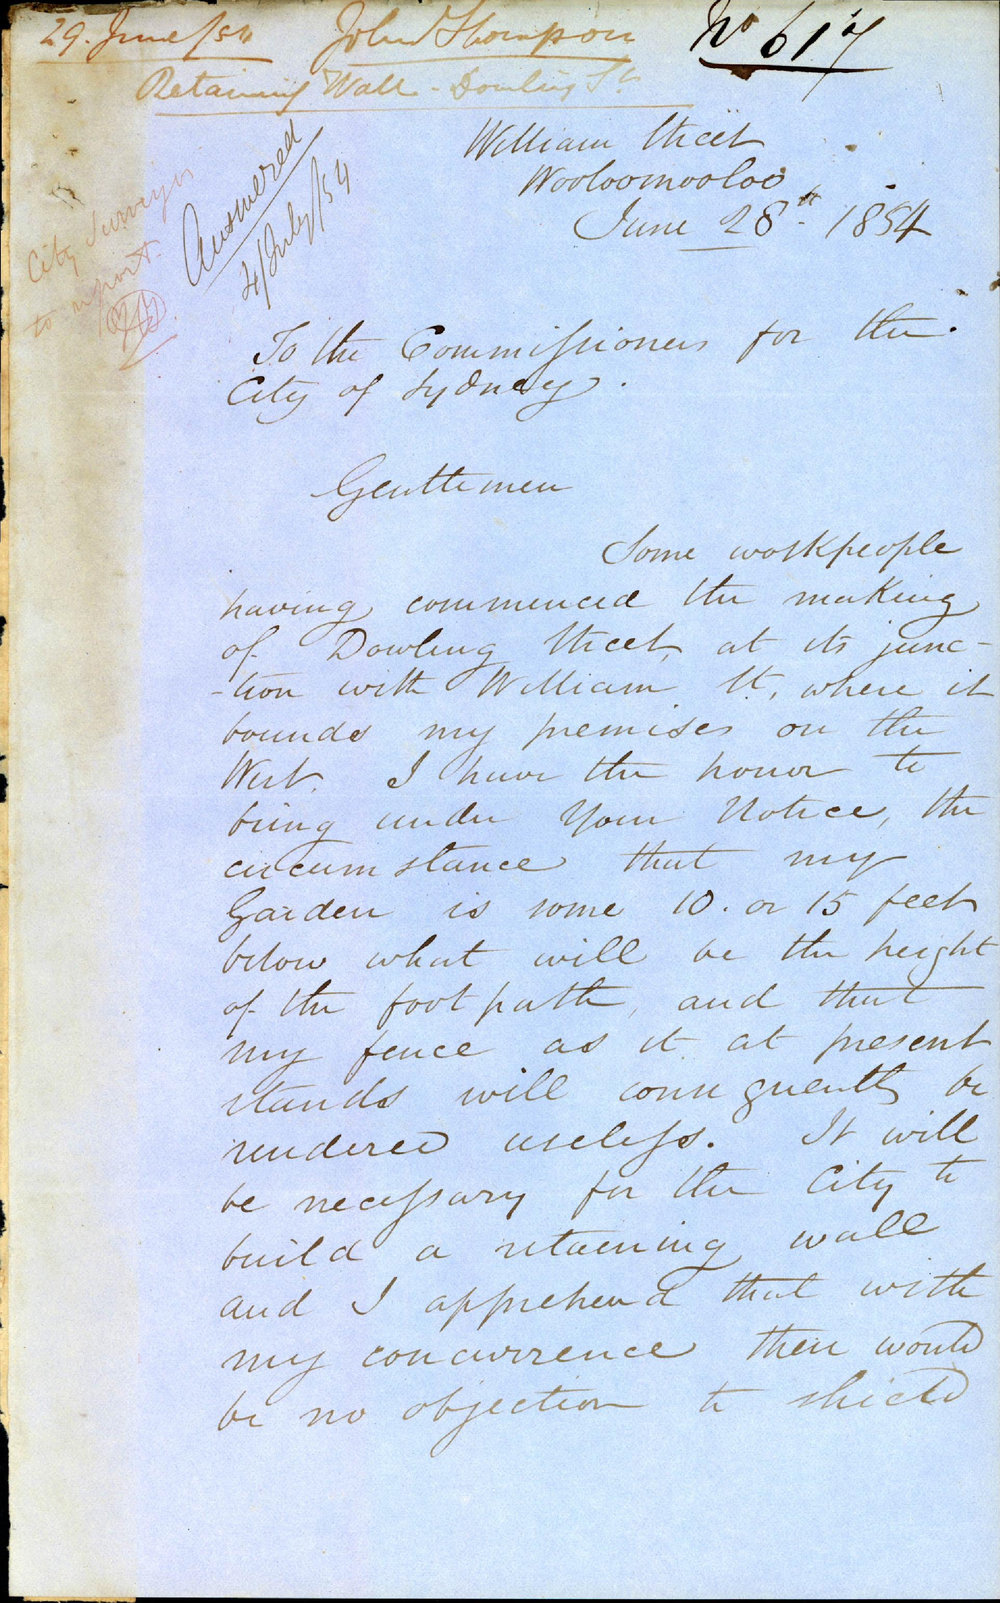 29. June/54 John Thompson No 617
Retaining Wall - Dowling St.
William Street
Wooloomooloo
June 28th 1854
Answered
4/July/54
City Surveyor
to report.
To the Commissioners for the
City of Sydney.
Gentlemen
Some workpeople
having commenced the making
of Dowling Street, at its junc-
-tion with William St, where it
bounds my premises on the
West. I have the honor to
bring under Your Notice, the
circumstance that my
Garden is some 10. or 15 feet
below what will be the height
of the foot path, and that
my fence as it at present
stands will consequently be
rendered useless. It will
be necessary for the City to
build a retaining wall
and I apprehend that with
my concurrence there would
be no objection to shield